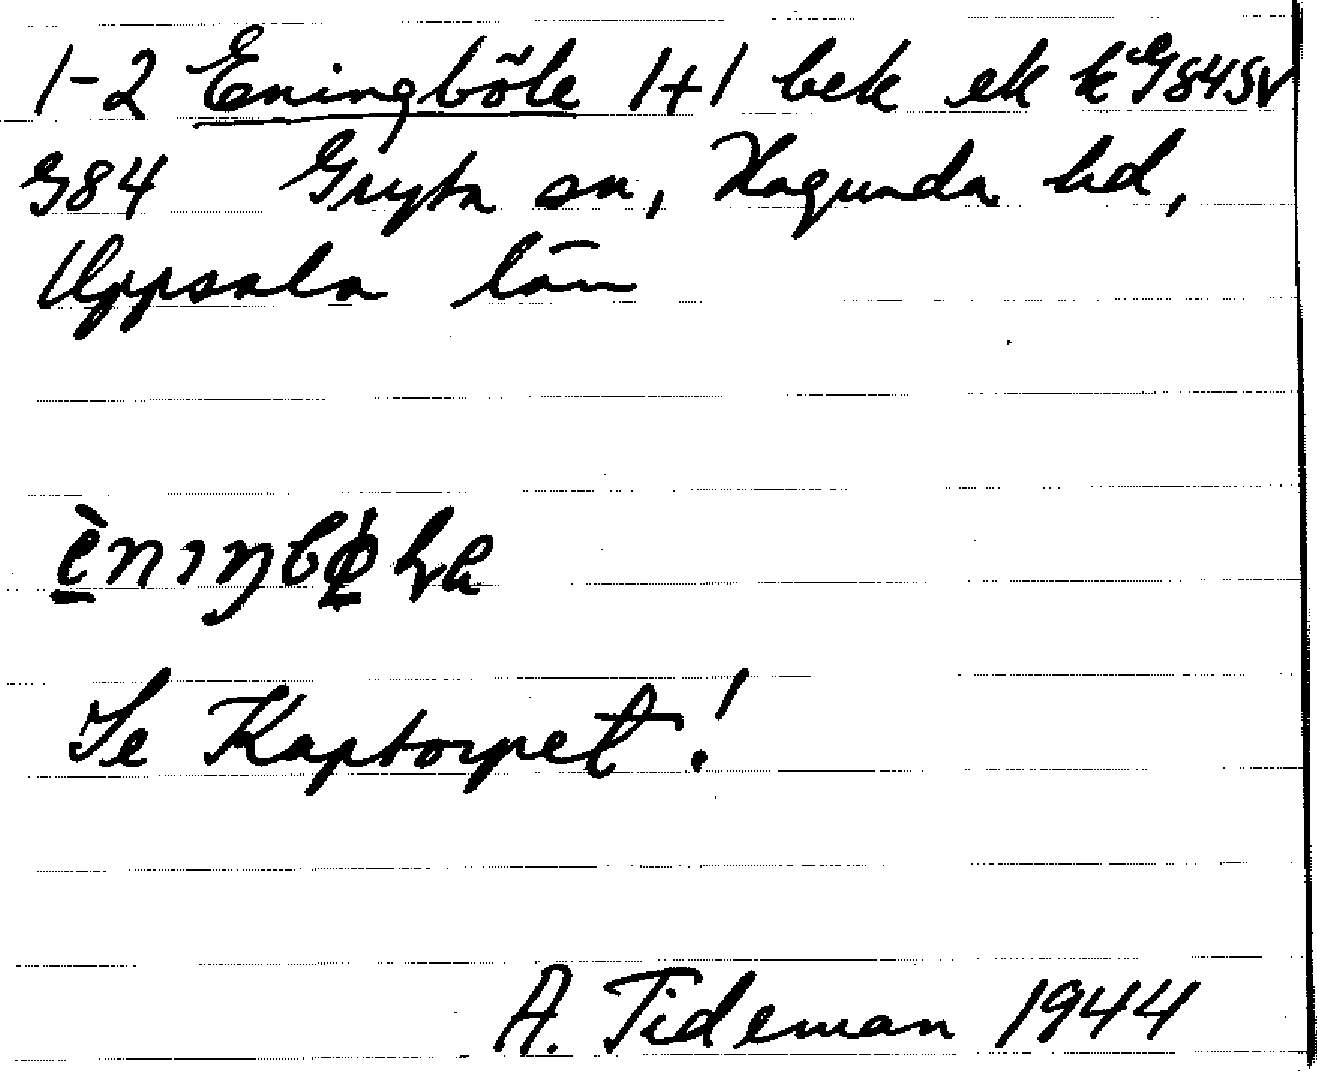 1-2 Eningböle 1+1 bek ek k G84SV
G84 Gryta sn, Hagunda hd,
Uppsala län
Se Kaptorpet!
A. Tideman 1944